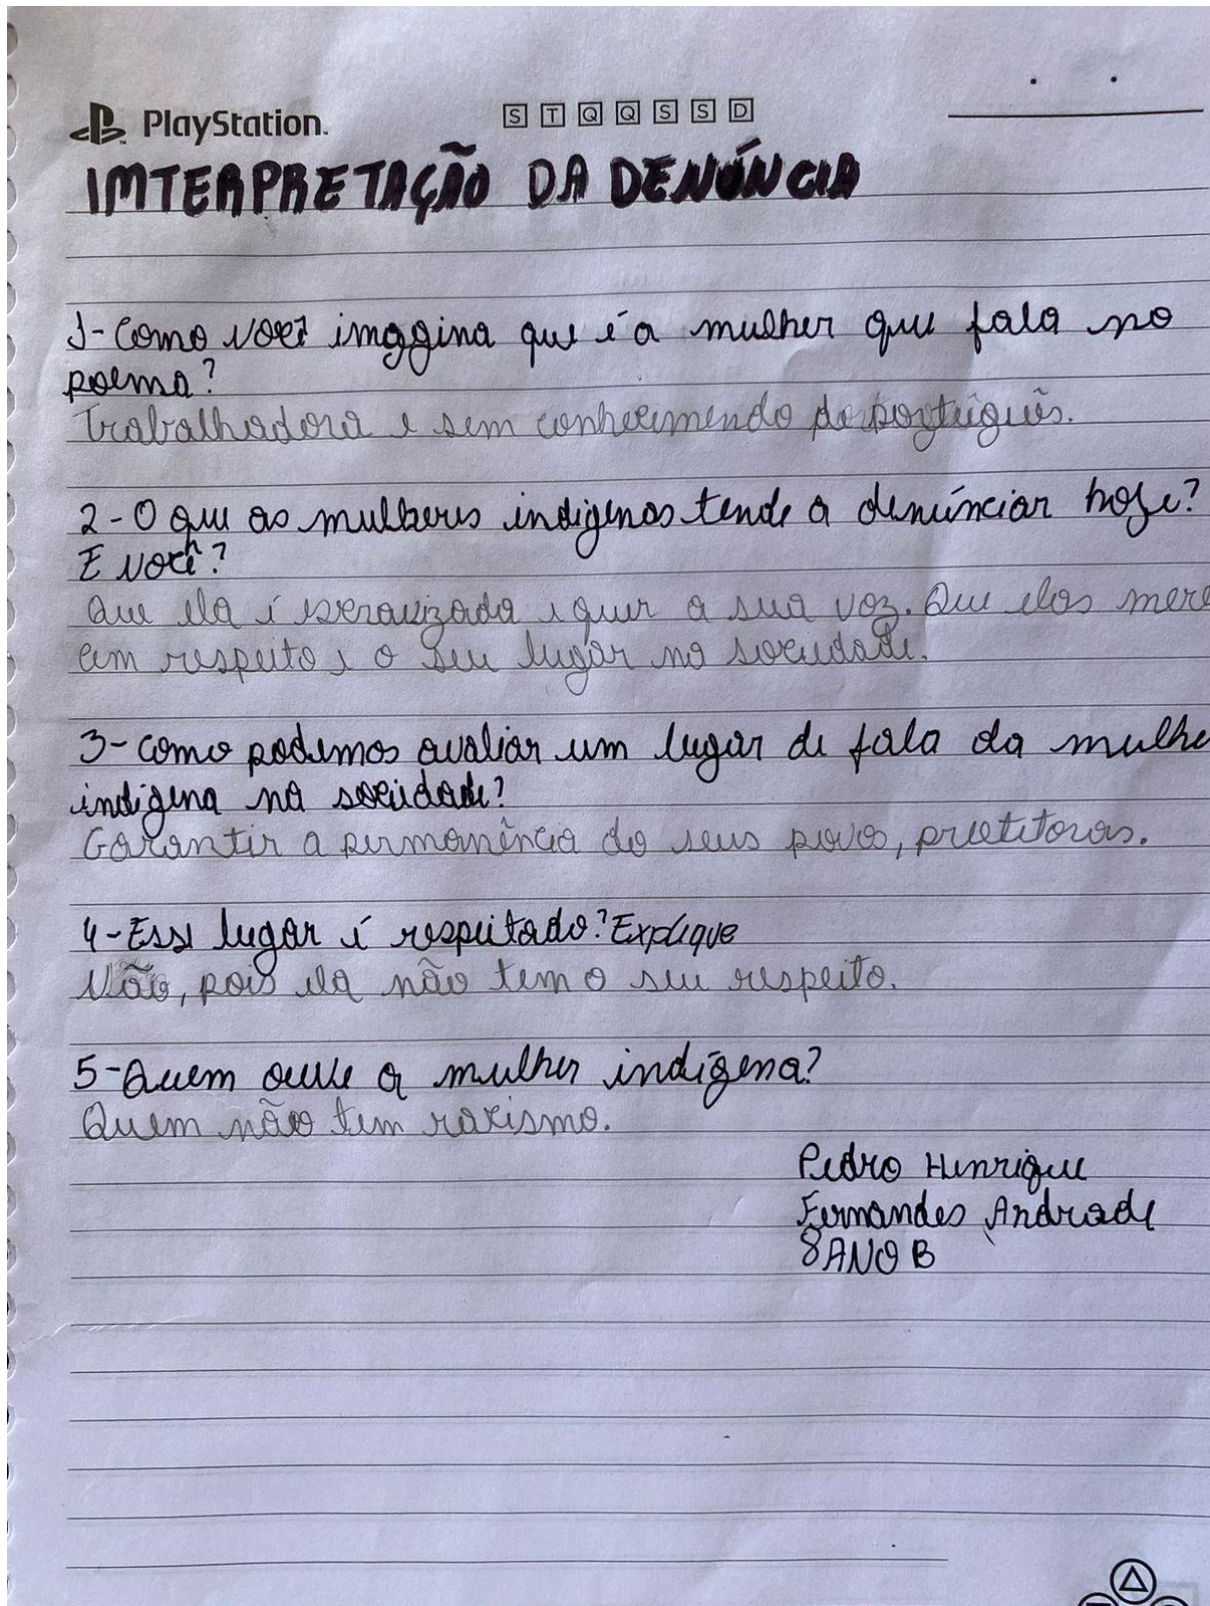 PlayStation.
S T Q Q S S D
IMTERPRETAÇÃO DA DENÚNCIA
1-Como você imagina que é a mulher que fala no
poema?
Trabalhadora e sem conhecimendo do português.
2-O que as mulheres indígenas tende a denúnciar hoje?
E você?
Que ela é escravizada e quer a sua voz. Que elas mere
cem respeito e o seu lugar na sociedade.
3-Como podemos avaliar um lugar de fala da mulhe
indígena na sociedade?
Garantir a permanência do seus povos,
4-Esse lugar é respeitado? Explique
Não, pois ela não tem o seu respeito.
5-Quem ouve a mulher indígena?
Quem não tem racismo.
Pedro Henrique
Fernandes Andrade
8 ANO B